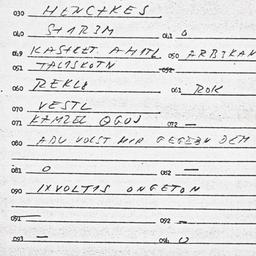 030 HENCKES
040 STARZM 041 0
049 KASTEET AMATL 050 ARBIKAN
051 TALISKOTN 052
060 REKLE 061 ROK
070 VESTL
071 KAMZEL OGOS 072 —
080 ADU VOLST MIR GEGEBN DEM
081 0 082 —
090 IXVOLTIS ONGETON
091 — 092 —
093 — 094 0